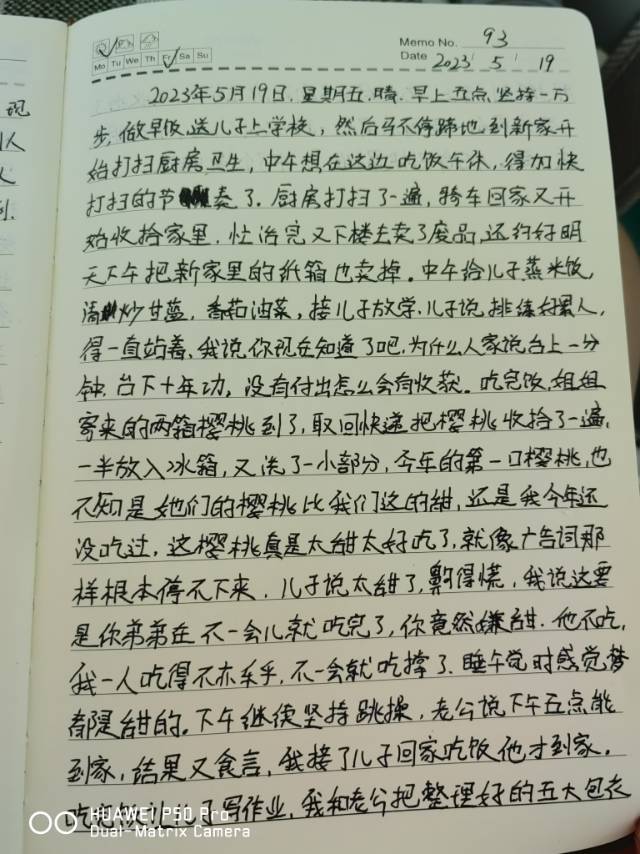 现
人
火
到.
Memo No. 93
Mo Tu We Th Fr Sa Su
Date 2023 5 19
2023年5月19日.星期五.晴.早上五点坚持一万
步,做早饭送儿子上学校,然后马不停蹄地到新家开
始打扫厨房卫生,中午想在这边吃饭午休,得加快
打扫的节奏了.厨房打扫了一遍,骑车回家又开
始收拾家里.忙活完又下楼去卖了废品,还约好明
天下午把新家里的纸箱也卖掉.中午给儿子蒸米饭,
清炒甘蓝,香菇油菜,接儿子放学.儿子说排练好累人,
得一直站着.我说你现在知道了吧.为什么人家说台上一分
钟.台下十年功,没有付出怎么会有收获。吃完饭,姐姐
寄来的两箱樱桃到了,取回快递把樱桃收拾了一遍,
一半放入冰箱,又洗了一小部分,今年的第一口樱桃,也
不知是她们的樱桃比我们这的甜,还是我今年还
没吃过,这樱桃真是太甜太好吃了,就像广告词那
样根本停不下来.儿子说太甜了,齁得慌,我说这要
是你弟弟在不一会儿就吃完了,你竟然嫌甜.他不吃,
我一人吃得不亦乐乎,不一会就吃撑了.睡午觉时感觉梦
都是甜的.下午继续坚持跳操,老公说下午五点能
到家,结果又食言,我接了儿子回家吃饭他才到家.
吃完饭让儿子写作业,我和老公把整理好的五大包衣
HUAWEI P50 Pro
Dual-Matrix Camera